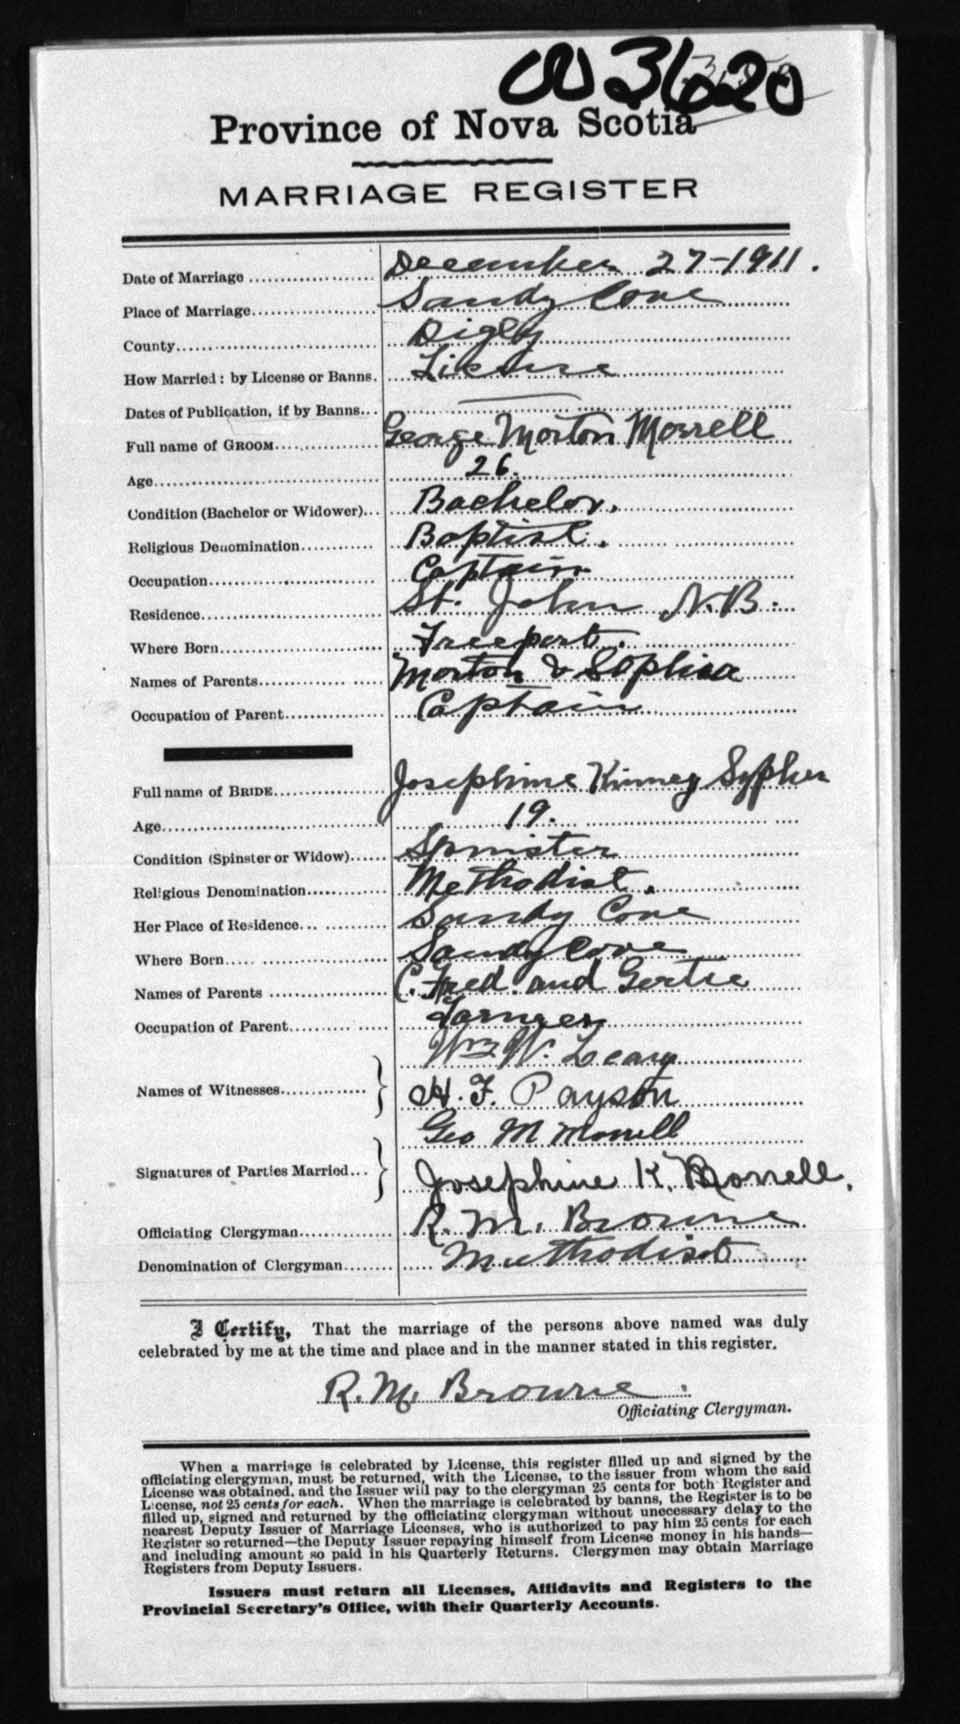 003620
Province of Nova Scotia
MARRIAGE REGISTER
Date of Marriage December 27-1911.
Place of Marriage Sandy Cove
County Digby
How Married: by License or Banns. License
Dates of Publication, if by Banns
Full name of GROOM George Morton Morrell
Age 26.
Condition (Bachelor or Widower) Bachelor.
Religious Denomination Baptist.
Occupation Captain
Residence St. John N.B.
Where Born Freeport.
Names of Parents Morton & Sophia
Occupation of Parent Captain
Full name of BRIDE Josephine Kinney Sypher
Age 19.
Condition (Spinster or Widow) Spinster
Religious Denomination Methodist.
Her Place of Residence Sandy Cove
Where Born Sandy Cove
Names of Parents C. Fred. and Gertie
Occupation of Parent Farmer
Wm W. Leary
Names of Witnesses H. F. Payson
Geo M Morrell
Signatures of Parties Married Josephine K. Morrell.
Officiating Clergyman R. M. Browne
Denomination of Clergyman Methodist
I Certify, That the marriage of the persons above named was duly
celebrated by me at the time and place and in the manner stated in this register.
R. M. Browne.
Officiating Clergyman.
When a marriage is celebrated by License, this register filled up and signed by the
officiating clergyman, must be returned, with the License, to the issuer from whom the said
License was obtained, and the Issuer will pay to the clergyman 25 cents for both Register and
License, not 25 cents for each. When the marriage is celebrated by banns, the Register is to be
filled up, signed and returned by the officiating clergyman without unecessary delay to the
nearest Deputy Issuer of Marriage Licenses, who is authorized to pay him 25 cents for each
Register so returned—the Deputy Issuer repaying himself from License money in his hands—
and including amount so paid in his Quarterly Returns. Clergymen may obtain Marriage
Registers from Deputy Issuers.
Issuers must return all Licenses, Affidavits and Registers to the
Provincial Secretary's Office, with their Quarterly Accounts.